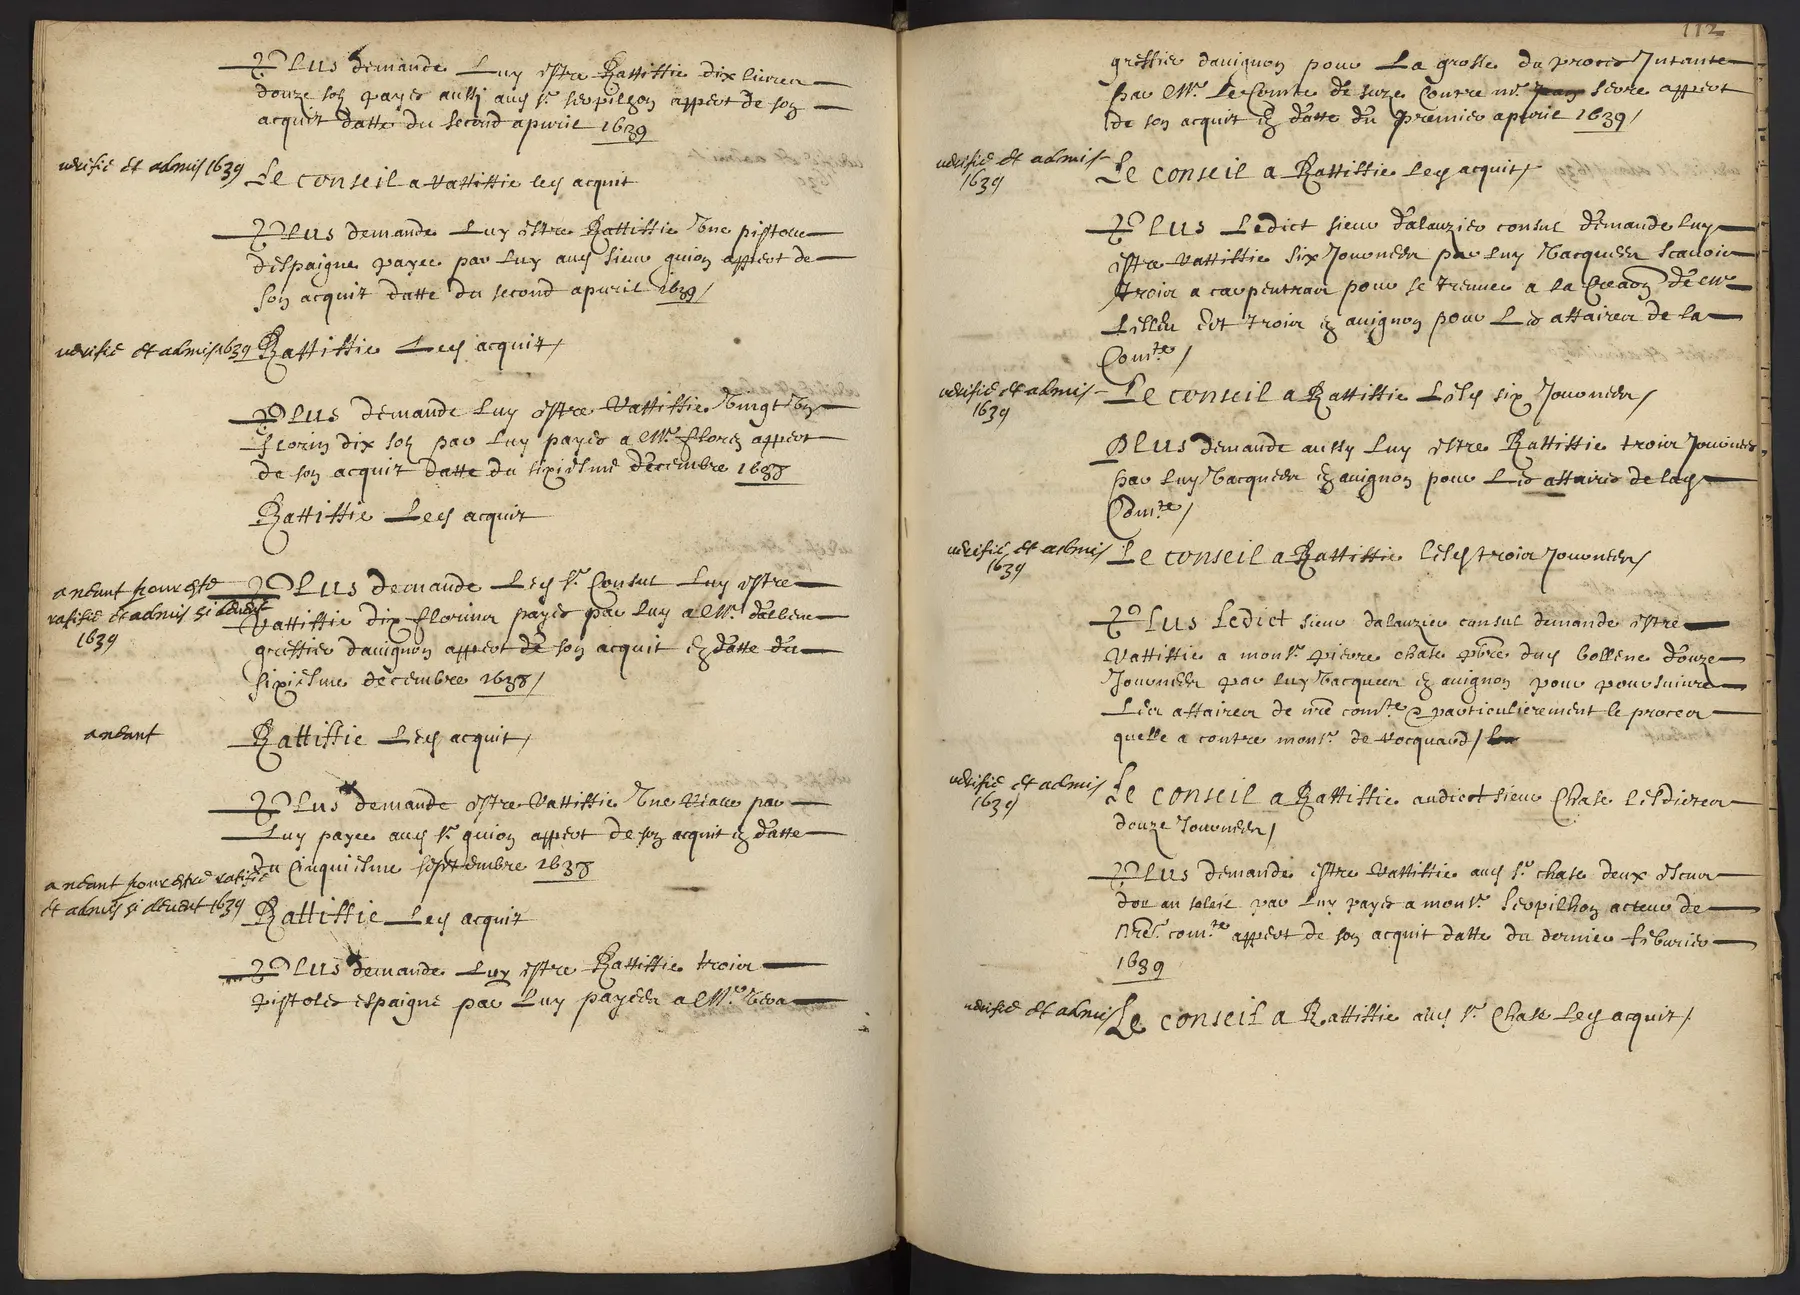 Plus demande Luy estre Rattiffie dix livres
douze sols payes aussi aud sr. serpilhon appert de son
acquit datte du second apvril 1639
verifie et admis 1639
Le conseil a rattiffie led acquit
Plus demande Luy estre Rattiffie Une pistolle
despaigne payee par luy aud sieur guion appert de
son acquit datte du second apvril 1639 /
verifie et admis 1639
Rattiffie Led acquit /
Plus demande luy estre rattiffie Vingt Un
florin dix sols par luy payes a Mr. floret appert
de son acquit datte du sixiesme decembre 1638
Rattiffie Led acquit
neant pour estre
ratifie et admis si devent
1639
Plus demande Led sr. Consul Luy estre
rattiffie dix florins payes par luy a Mr. dalbene
greffier davignon appert de son acquit en datte du
sixiesme decembre 1638 /
neant
Rattiffie Led acquit /
Plus demande estre rattiffie Une par
Luy payee aud sr. guion appert de son acquit en datte
du Cinquiesme septembre 1638
neant pour estre ratifie
et admis si devent 1639
Rattiffie Led acquit
Plus demande Luy estre Rattiffie trois
pistoles espaigne par Luy payees a Mr.
112
greffier davignon pour La grosse du proces Intante
par Mr. Le Comte de suze Contre appert
de son acquit en datte du premier apvril 1639 /
verifie et admis
1639
Le conseil a Rattiffie Led acquit /
Plus Ledict sieur dalauzier consul demande luy
estre rattiffie six Journees par luy Vacquees scavoir
trois a carpentras pour se treuver a la Creaon de Mrs
Et trois en avignon pour Les affaires de la
Comte /
verifie et admis
1639
Le conseil a Rattiffie Lesd six Journees /
Plus demande aussy Luy estre Rattiffie trois Journees
par Luy Vacquees en avignon pour Les affaires de lad
Comte /
verifie et admis
1639
Le conseil a Rattiffie lesd trois Journees /
Plus Ledict sieur dalauzier consul demande estre
rattiffie a monsr. pierre chase pbre dud bollene douze
Journees par luy Vacquees en avignon pour poursuivre
Les affaires de nre comte & particulierement le proces
quelle a contre monsr. de rocquard /
verifie et admis
1639
Le conseil a Rattiffie audict sieur Chase Lesdictes
douze Journees /
Plus demande estre rattiffie aud sr. chase deux escus
dor au soleil par Luy payes a monsr. Serpilhon acteur de
nre. comte appert de son acquit datte du dernier febvrier
1639
verifie et admis
Le conseil a Rattiffie aud sr. Chase Led acquit /